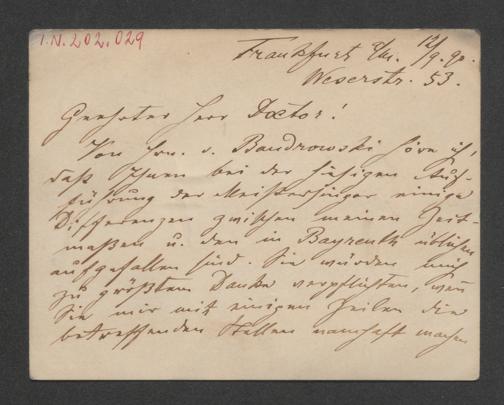 I.N.202.029
Frankfurt a/M. 12/9. 90.
Weserstr. 53.
Geehrter Herr Doctor!
Von Hrn. v. Bandrowski höre ich,
daß Ihnen bei der hiesigen Auf-
führung der Meistersinger einige
Differenzen zwischen meinen Zeit-
maßen u. den in Bayreuth üblichen
aufgefallen sind. Sie würden mich
zu größtem Danke verpflichten, wenn
Sie mir mit einigen Zeilen die
betreffenden Stellen namhaft machen